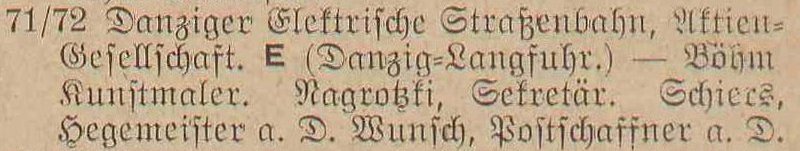 71/72 Danziger Elektrische Straßenbahn, Aktien-
Gesellschaft. E (Danzig-Langfuhr.) — Böhm
Kunstmaler. Nagrotzki, Sekretär. Schiers,
Hegemeister a. D. Wunsch, Postschaffner a. D.